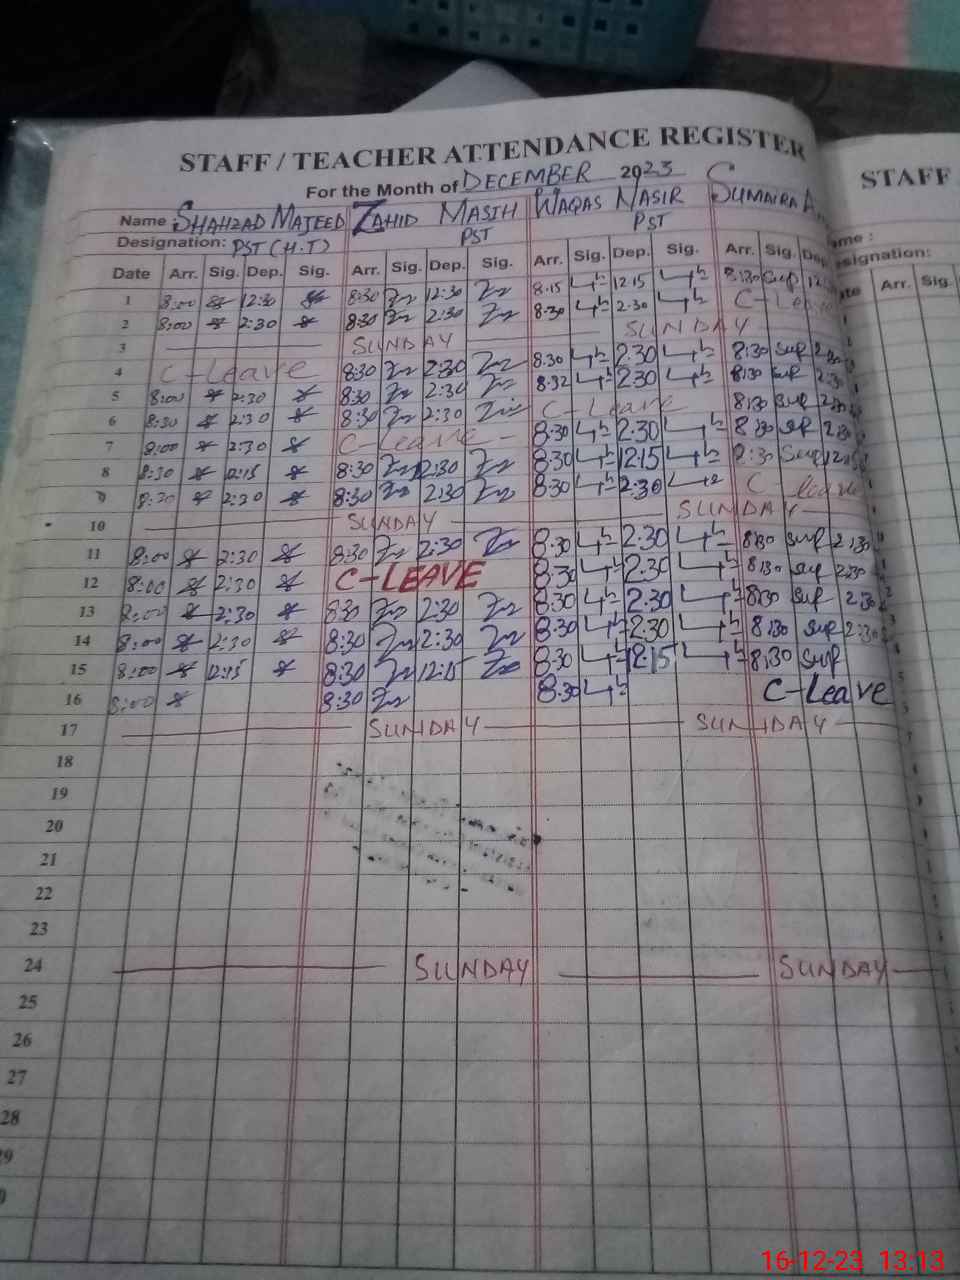 STAFF / TEACHER ATTENDANCE REGISTER
STAFF
For the Month of DECEMBER 2023
Name : SHAHZAD MAJEED ZAHID MASIH WAQAS NASIR SUMAIRA
Designation: PST (H.T) PST PST
Date Arr. Sig. Dep. Sig. Arr. Sig. Dep. Sig. Arr. Sig. Dep. Sig. Arr. Sig. Arr. Sig.
1 8:00 12:30 8:30 12:30 8.15 12.15 8:30 Sup
2 8:00 2:30 8:30 2:30 8.30 2.30 C-Leave
3 SUNDAY SUNDAY
4 C-Leave 8:30 2:30 8.30 2.30 8:30 Sup
5 8:00 2:30 8:30 2:30 8.32 2.30 8:30 Sup
6 8:30 2:30 8:30 2:30 C-Leave 8:30 Sup
7 8:00 2:30 C-Leave 8.30 2.30 8:30 Sup 2:30
8 8:30 12:15 8:30 12:30 8.30 12.15 Sup
9 8:30 2:30 8:30 2:30 8.30 2.30 C-leave
10 SUNDAY SUNDAY
11 8:00 2:30 8:30 2:30 8.30 2.30 8:30 Sup 2:30
12 8:00 2:30 C-LEAVE 8.30 2.30 8:30 Sup 2:30
13 8:00 2:30 8:30 2:30 8.30 2.30 8:30 Sup 2:30
14 8:00 2:30 8:30 2:30 8.30 2.30 8:30 Sup 2:30
15 8:00 12:15 8:30 12:15 8.30 12.15 8:30 Sup
16 8:00 8:30 8.30 C-Leave
17 SUNDAY SUNDAY
18
19
20
21
22
23
24 SUNDAY SUNDAY
25
26
27
28
16-12-23 13:13